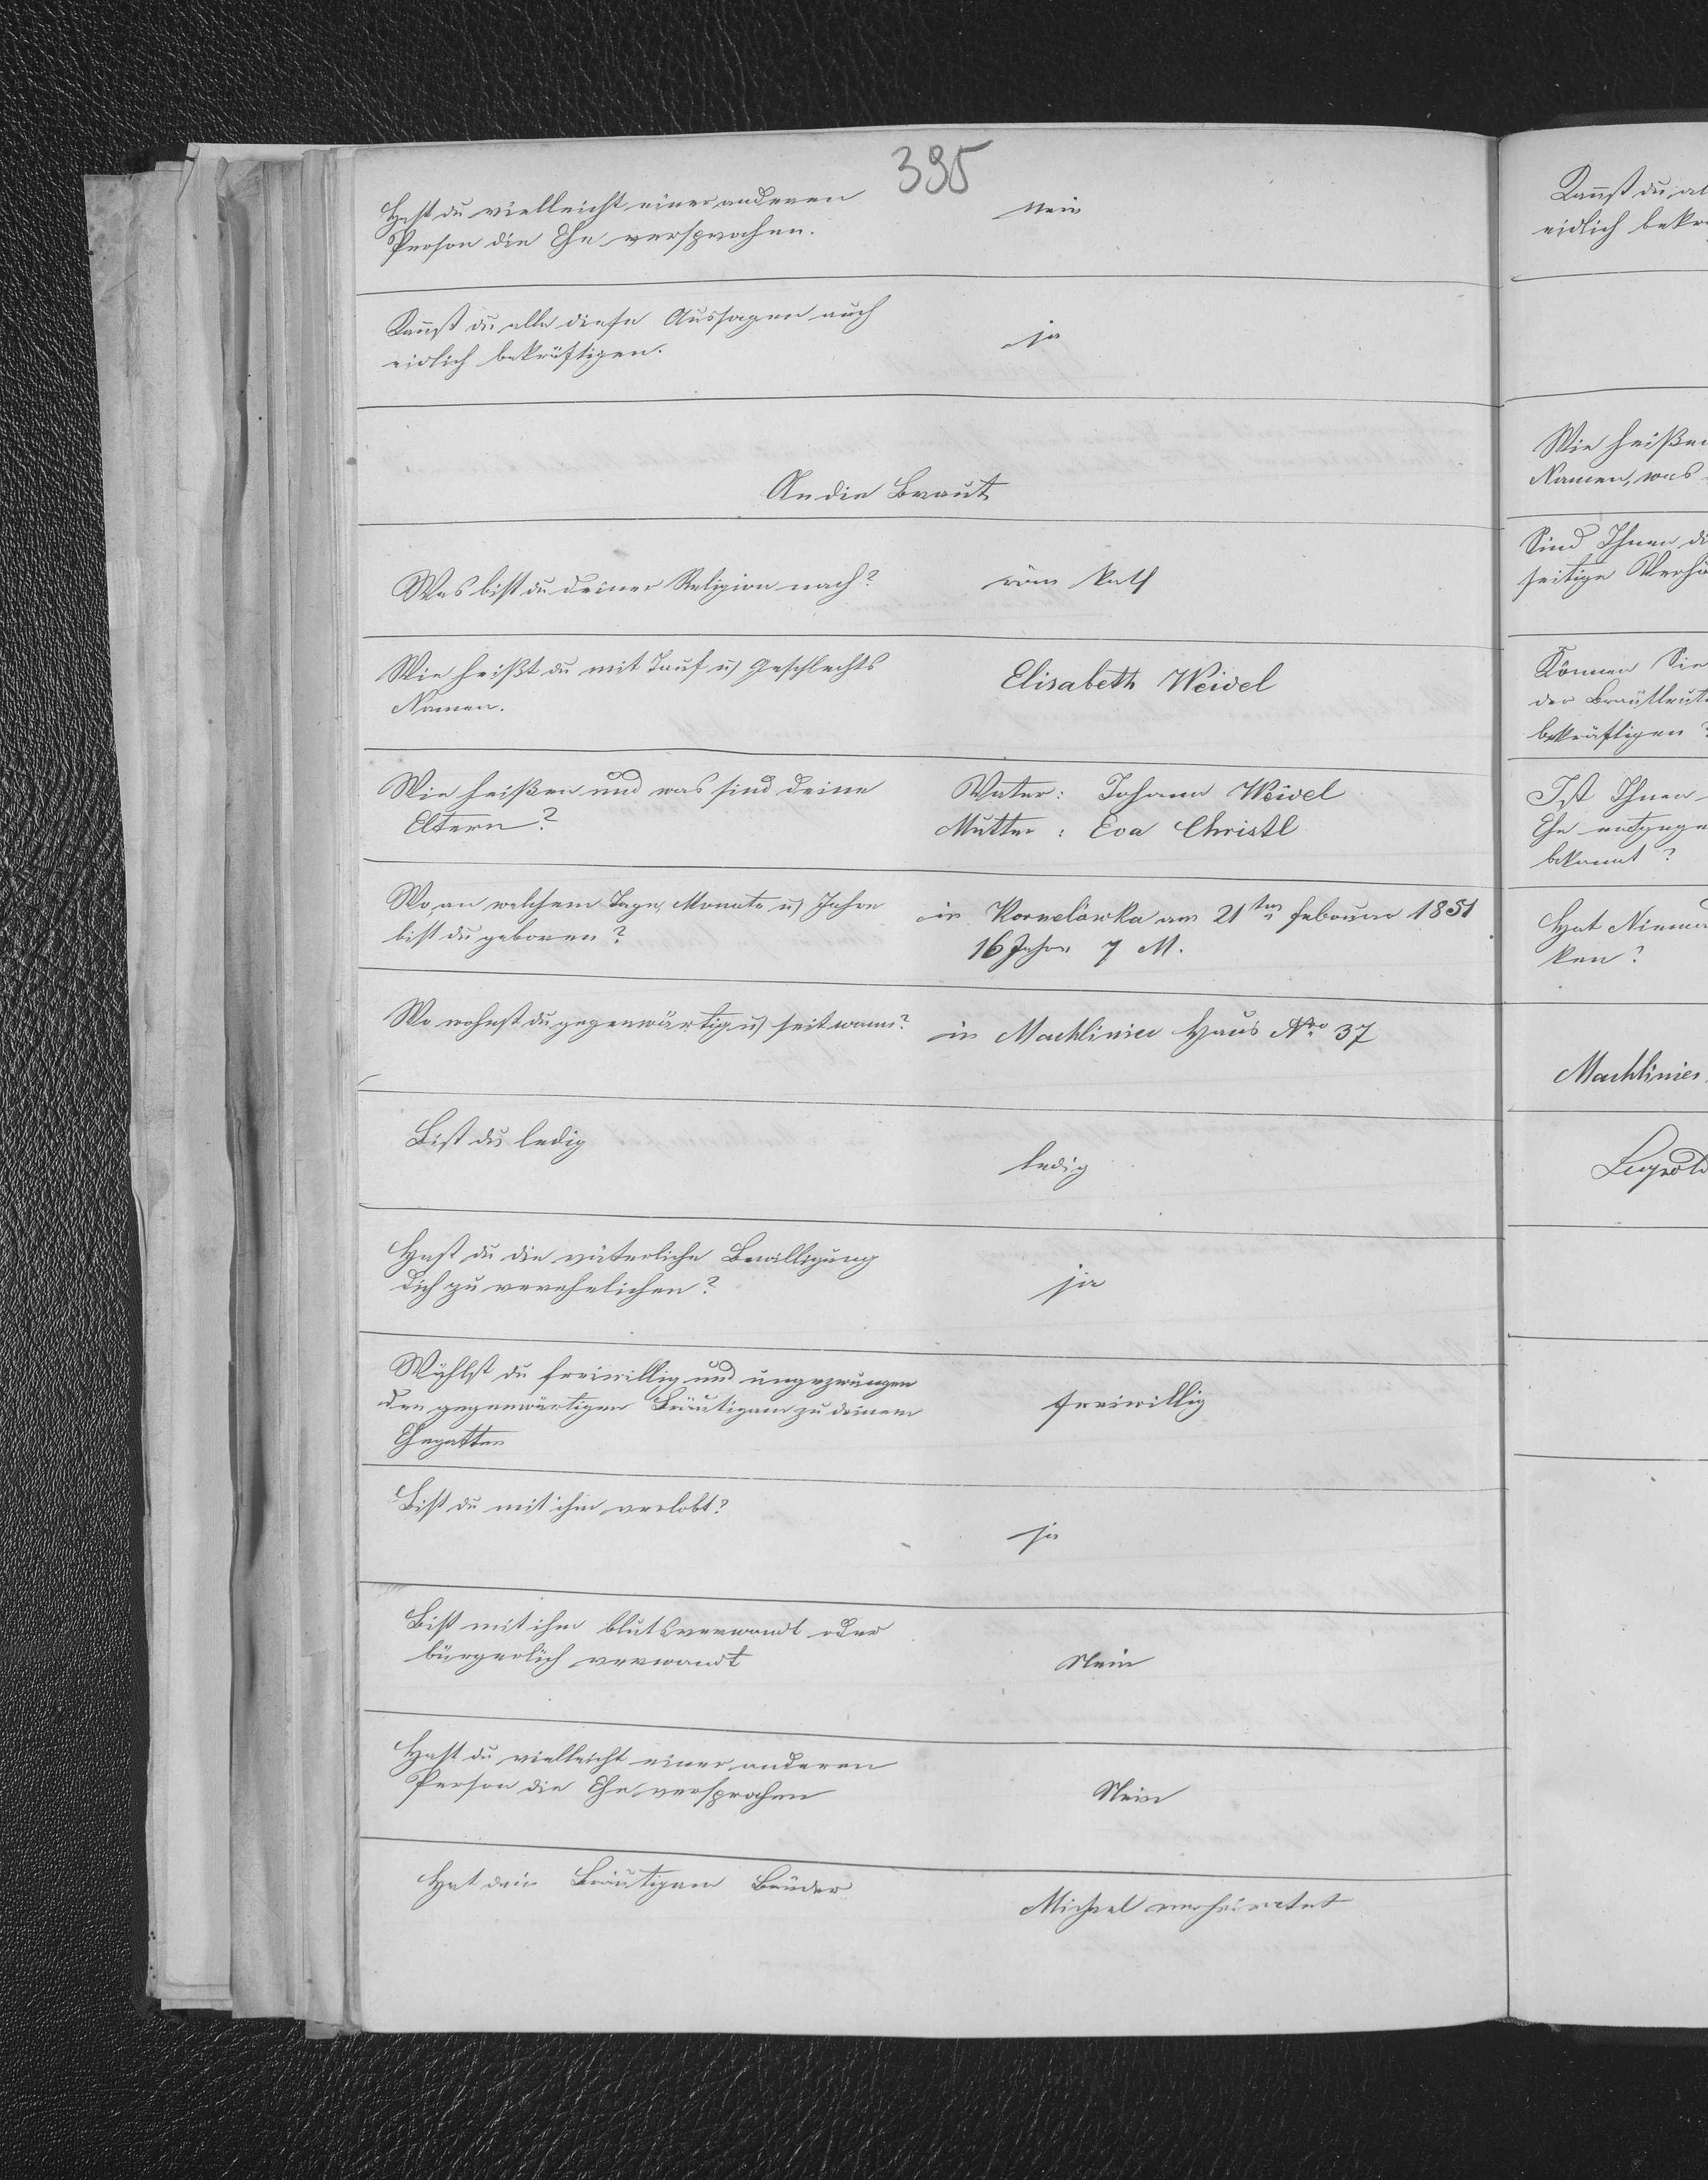 395
Hast du vielleicht einer anderen
Person die Ehe versprochen.
Nein
Kannst du alle diese Aussagen auch
eidlich bekräftigen.
ja
An die Braut
Was bist du deiner Religion nach?
röm Kath
Wie heißt du mit Tauf u) Geschlechts
Namen.
Elisabeth Weidel
Wie heißen und was sind deine
Eltern?
Vater: Johann Weidel
Mutter: Eva Christl
Wo, an welchem Tage, Monate u) Jahre
bist du geboren?
in Kornelówka am 21ten Februar 1851
16 Jahre 7 M.
Wo wohnst du gegenwärtig u) seit wann?
in Machliniec Haus Nro 37
Bist du ledig
ledig
Hast du die väterliche Bewilligung
dich zu verehelichen?
ja
Wählst du freiwillig und ungezwungen
den gegenwärtigen Bräutigam zu deinem
Ehegatten
freiwillig
Bist du mit ihm verlobt?
ja
Bist mit ihm blutsverwandt oder
bürgerlich verwandt
Nein
Hast du vielleicht einer anderen
Person die Ehe versprochen
Nein
Hat dein Bräutigam Brüder
Michael verheiratet
Kannst du al
eidlich bekr
Wie heißen
Namen, was
Sind Ihnen di
seitige Verhä
Können Sie
der Brautleute
bekräftigen?
Ist Ihnen
Ehe entgege
bekannt?
Hat Niema
ken?
Machliniec
Leopold